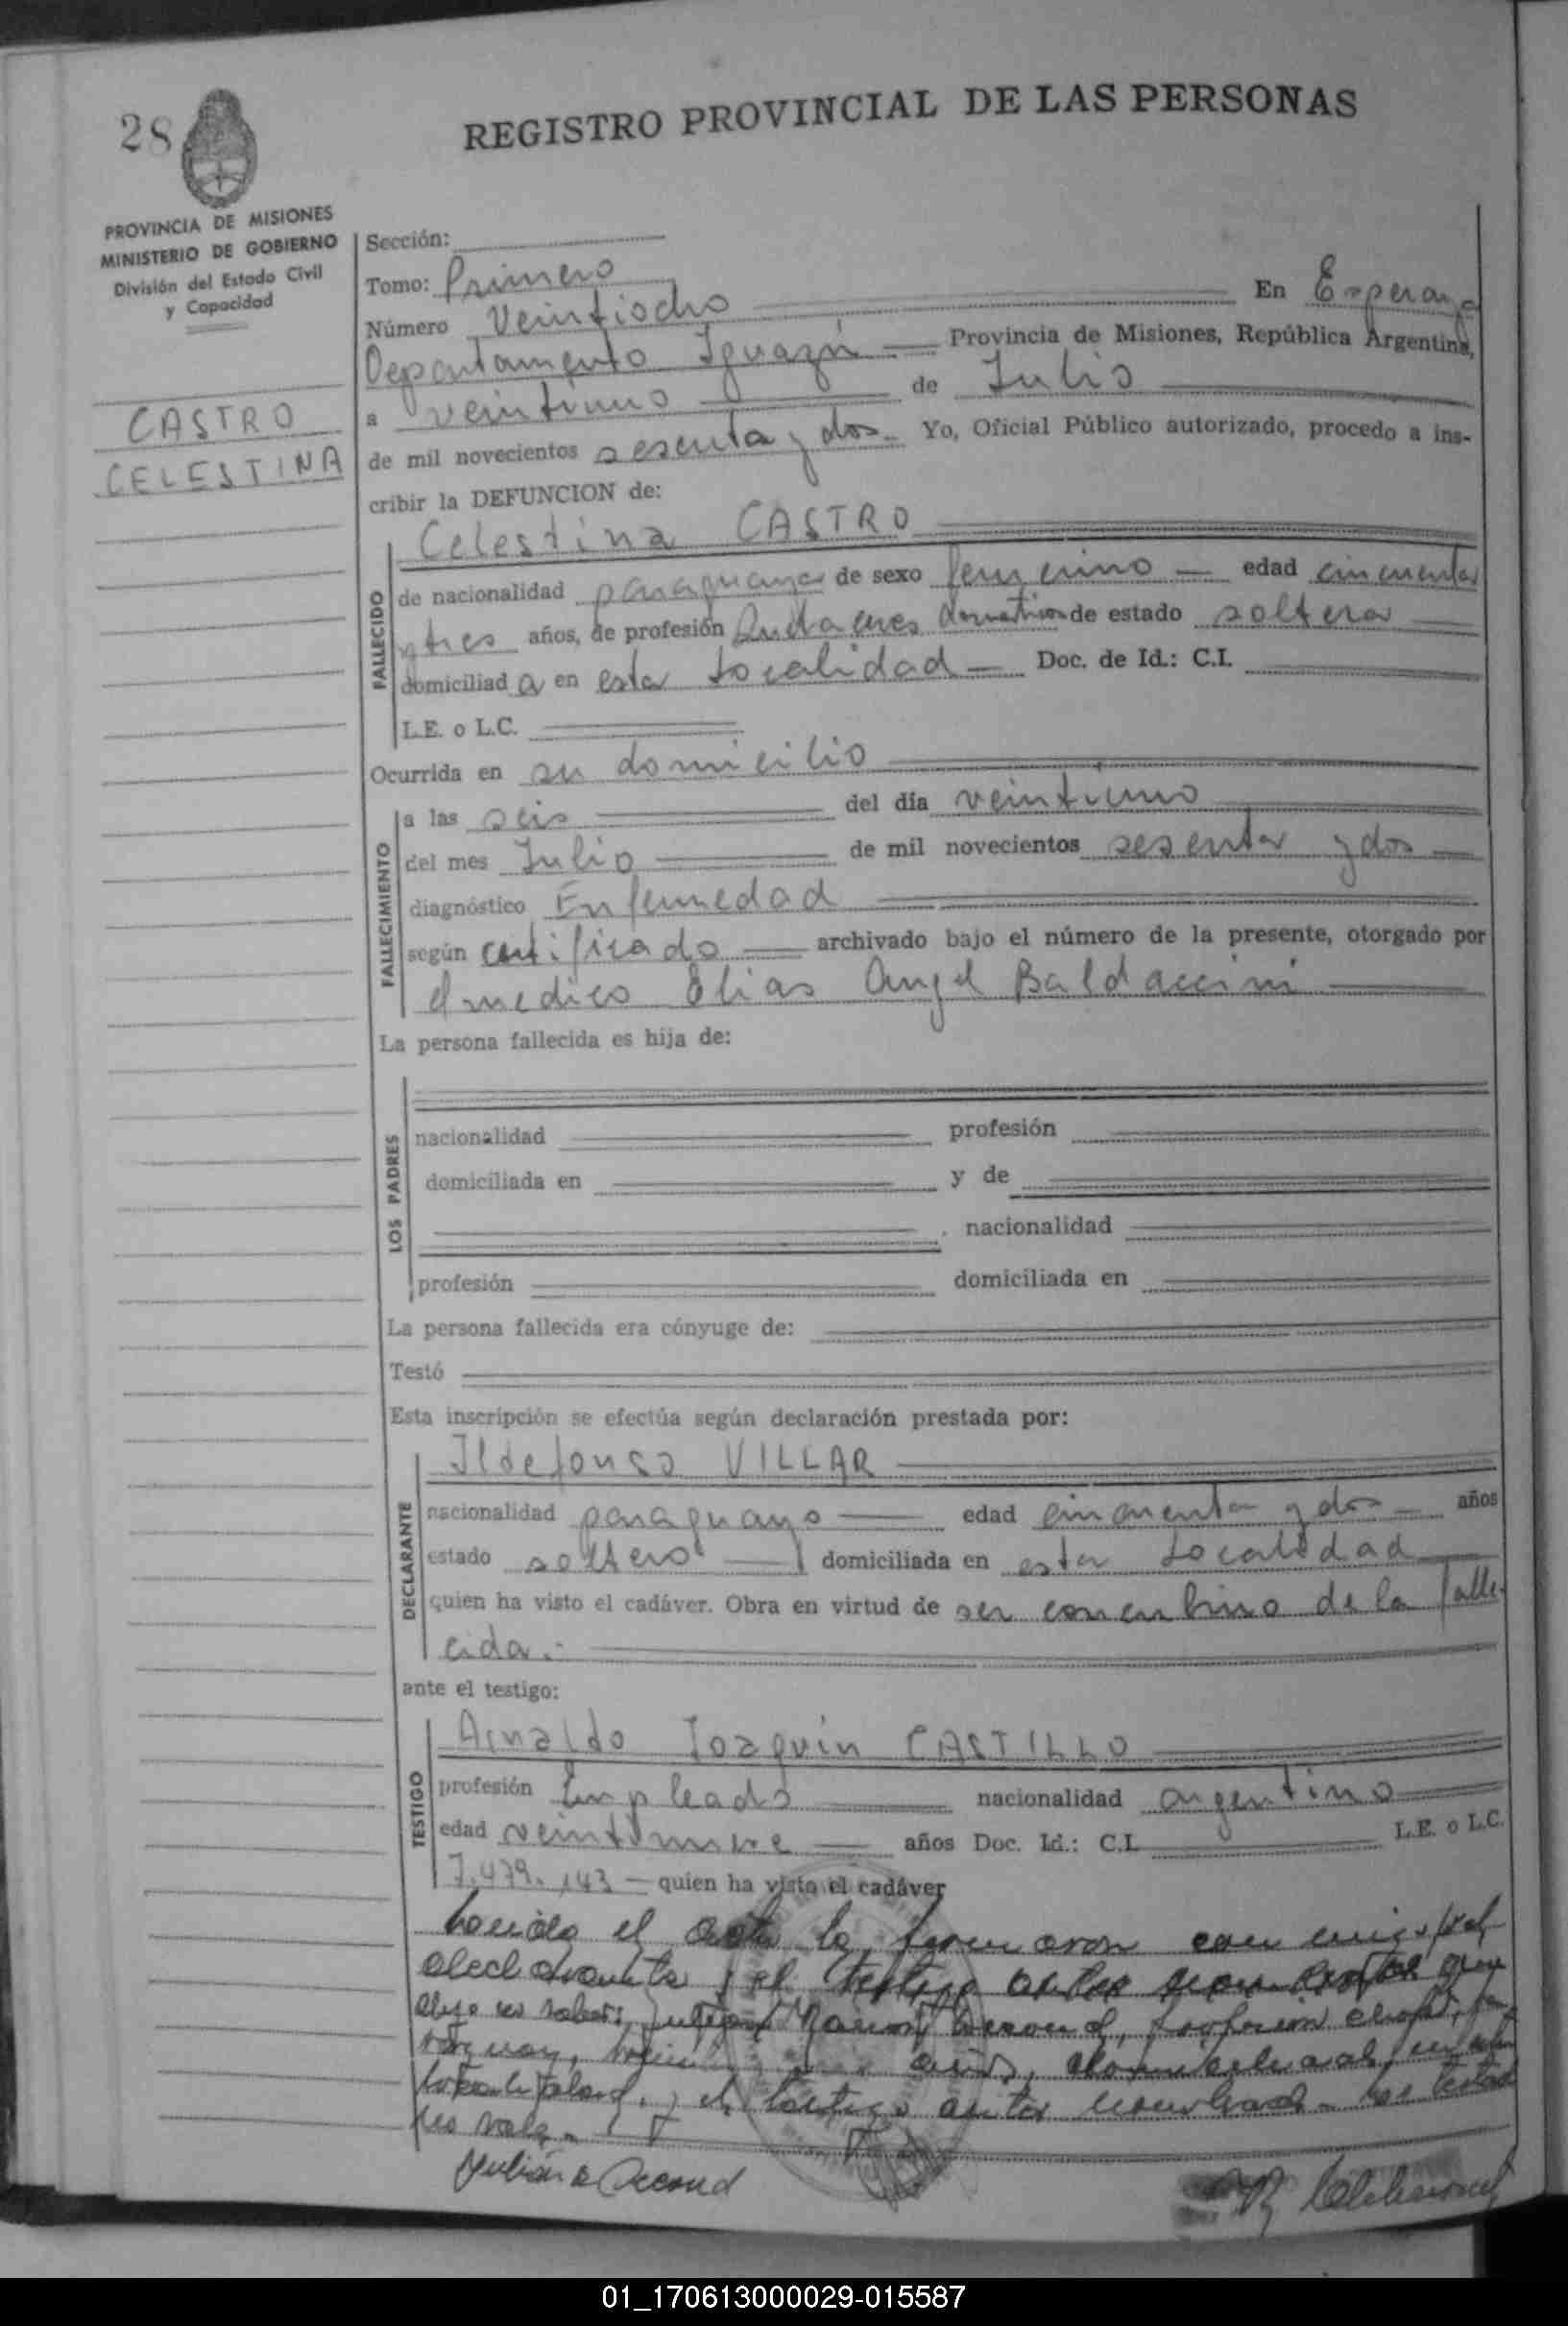 28
REGISTRO PROVINCIAL DE LAS PERSONAS
PROVINCIA DE MISIONES
MINISTERIO DE GOBIERNO
División del Estado Civil
y Capacidad
CASTRO
CELESTINA
Sección:
Tomo: Primero
Número Veintiocho En Esperanza
Departamento Iguazú Provincia de Misiones, República Argentina,
a veintiuno de Julio
de mil novecientos sesenta y dos Yo, Oficial Público autorizado, procedo a ins-
cribir la DEFUNCION de:
Celestina CASTRO
FALLECIDO
de nacionalidad paraguaya de sexo femenino edad cincuenta
y tres años, de profesión domesticos de estado soltera
domiciliad a en esta localidad Doc. de Id.: C.I.
L.E. o L.C.
Ocurrida en su domicilio
FALLECIMIENTO
a las seis del día veintiuno
del mes Julio de mil novecientos sesenta y dos
diagnóstico Enfermedad
según certificado archivado bajo el número de la presente, otorgado por
el medico Elias Angel Baldaccini
La persona fallecida es hija de:
LOS PADRES
nacionalidad profesión
domiciliada en y de
nacionalidad
profesión domiciliada en
La persona fallecida era cónyuge de:
Testó
Esta inscripción se efectúa según declaración prestada por:
Ildefonso VILLAR
DECLARANTE
nacionalidad paraguayo edad cincuenta y dos años
estado soltero domiciliada en esta localidad
quien ha visto el cadáver. Obra en virtud de ser concubino de la falle-
cida.-
ante el testigo:
Arnaldo Joaquin CASTILLO
TESTIGO
profesión Empleado nacionalidad argentino
edad veintinueve años Doc. Id.: C.I. L.E. o L.C.
7.479.143 quien ha visto el cadáver
el acta la firmaron el
declarante y el testigo antes
profesión
años,
y el testigo antes
01_170613000029-015587